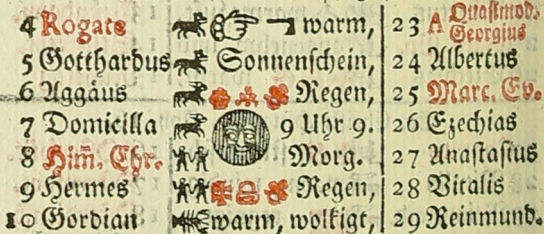 4 Rogate warm, 23 A Quasimod. Georgius
5 Gotthardus Sonnenschein, 24 Albertus
6 Aggäus Regen, 25 Marc. Ev.
7 Domicilla 9 Uhr 9. 26 Ezechias
8 Him̄. Chr. Morg. 27 Anastasius
9 Hermes Regen, 28 Vitalis
10 Gordian warm, wolkigt, 29 Reinmund.